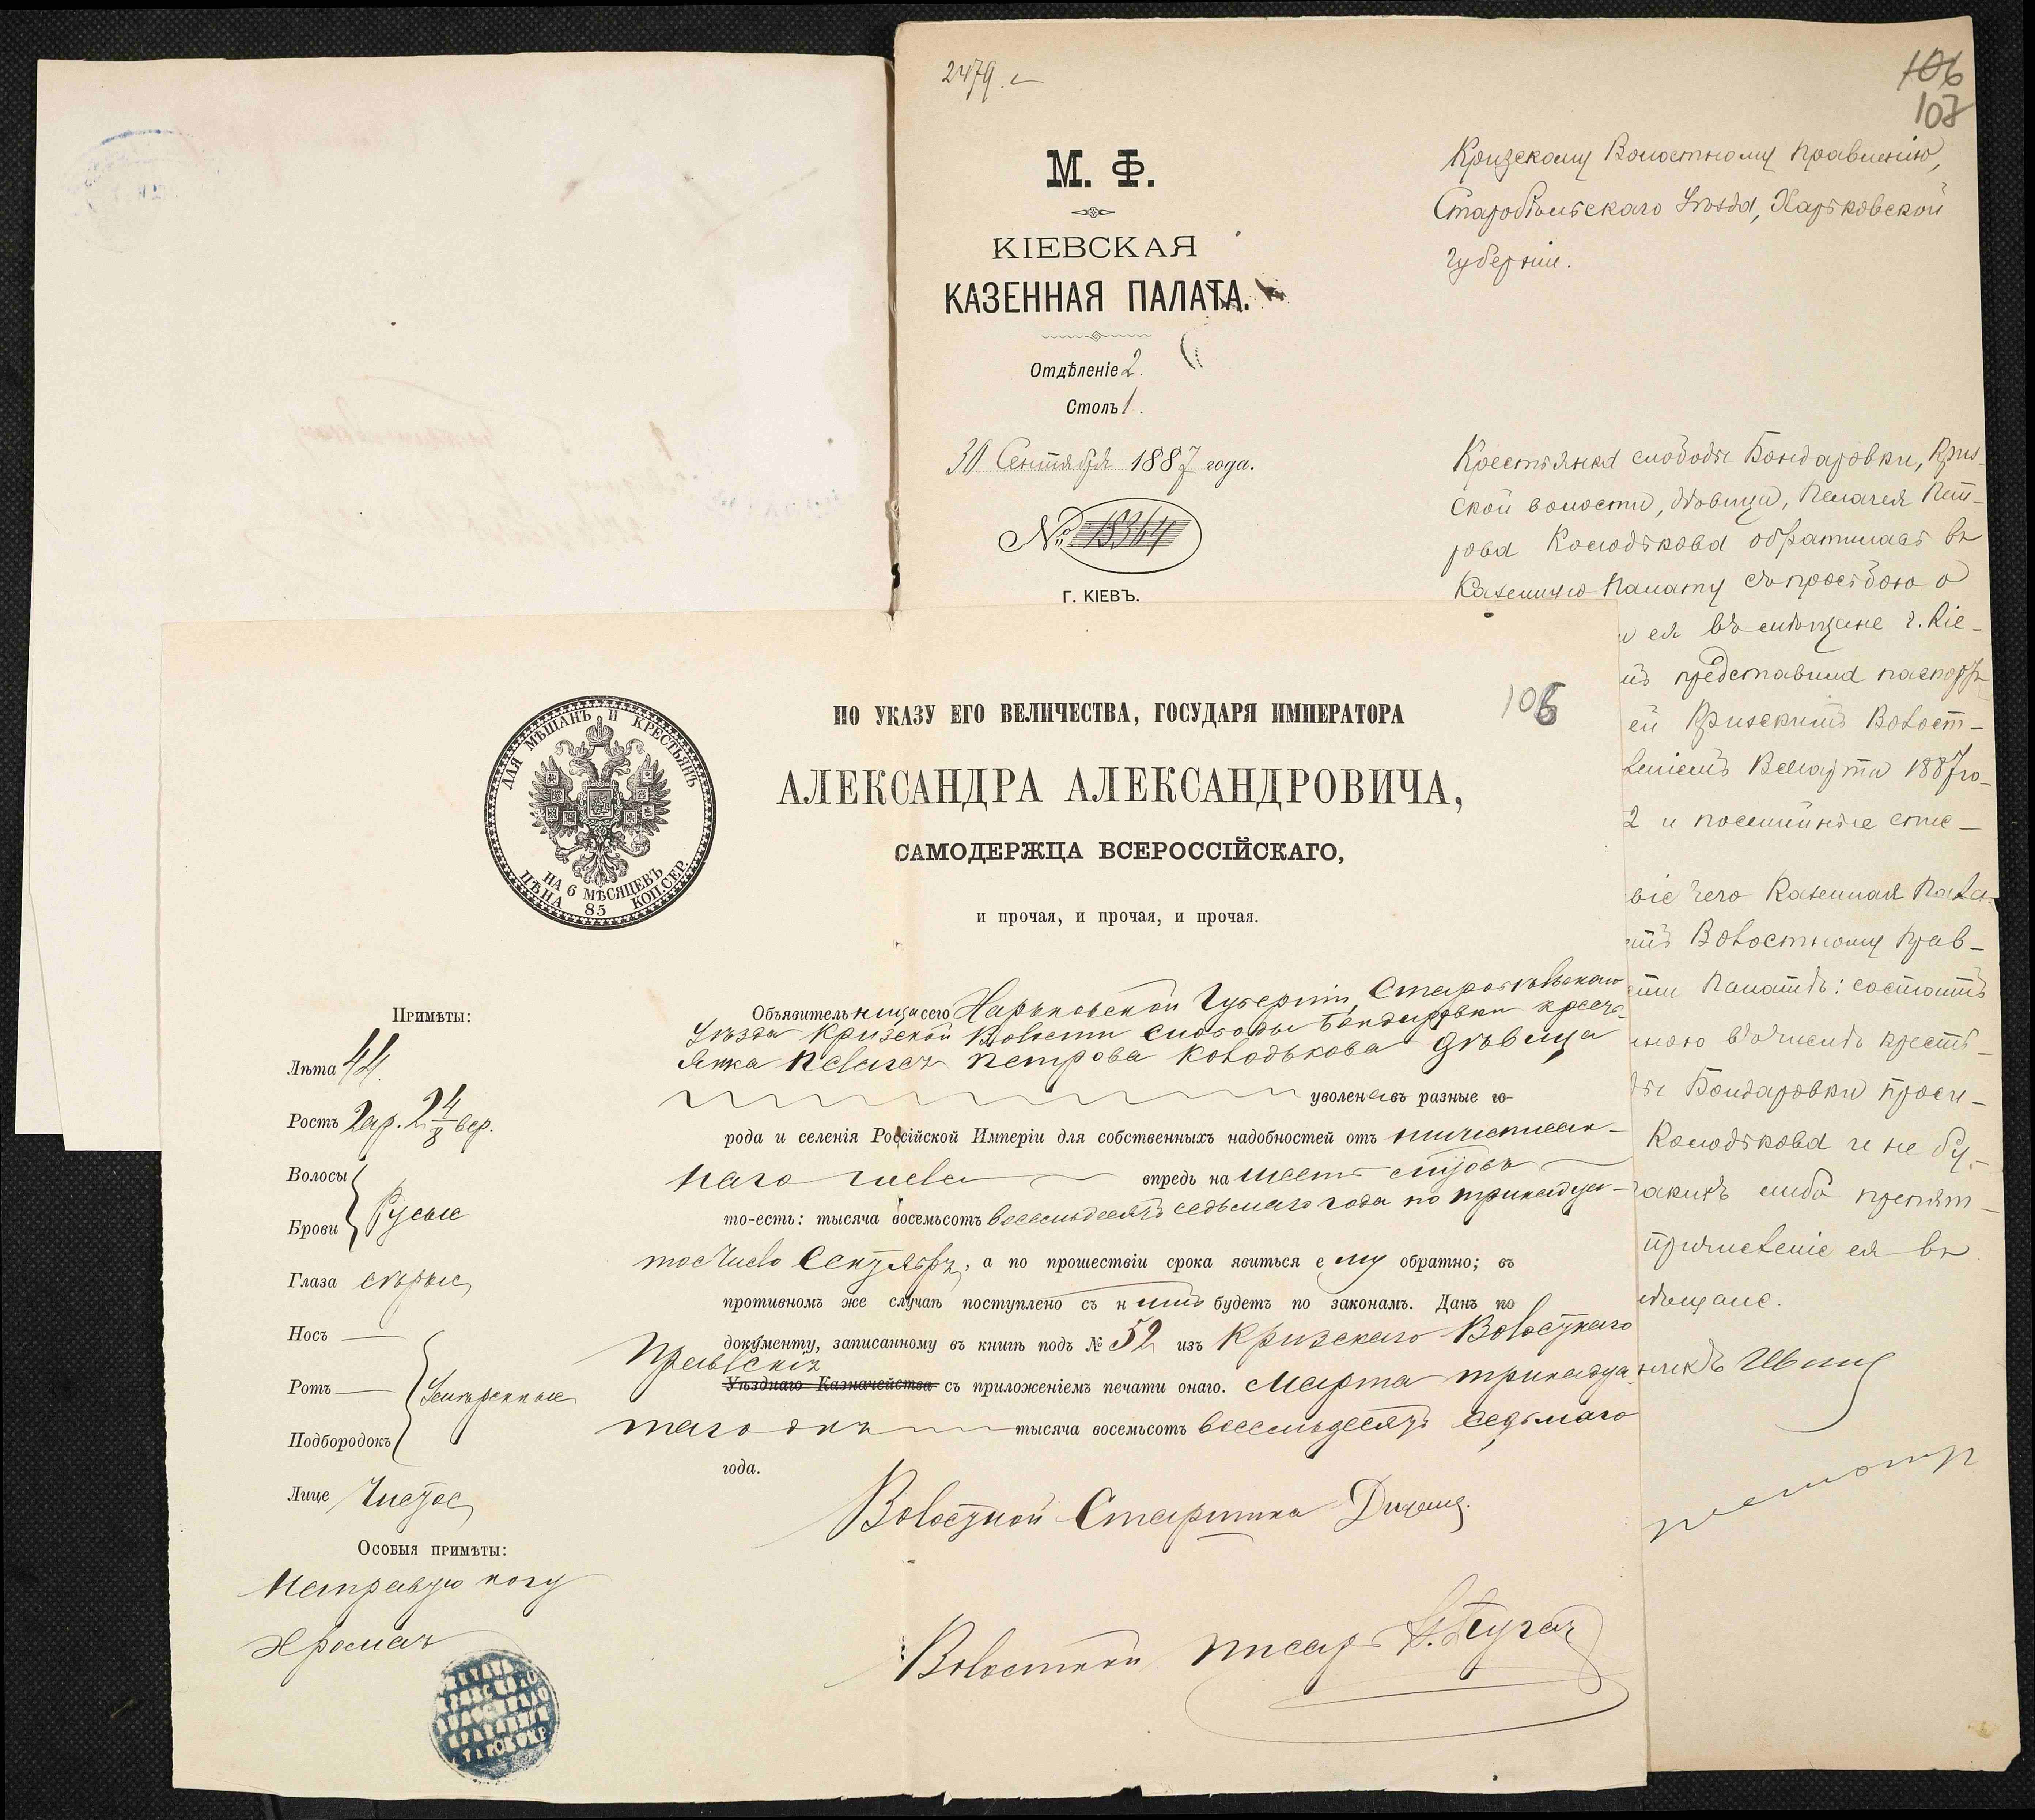 2479.
106
107
М. Ф.
КІЕВСКАЯ
КАЗЕННАЯ ПАЛАТА.
Отдѣленіе 2.
Столъ 1.
30 Сентября 1887 года.
№ 18364
Г. КІЕВЪ.
Кризскому Волостному Правленію,
Старобѣльскаго Уѣзда, Харьковской
губерніи.
Крестьянка слободы Бондаровки, Криз-
ской волости, дѣвица, Пелагея Пет-
рова Колодькова обратилась въ
Казенную Палату съ просьбою о
ея въ мѣщане г. Кіе-
представила паспортъ
ей Кризскимъ Волост-
леніемъ 13 марта 1887 го-
2 и посемейные спис-
віе чего Казенная Пала-
Волостному Прав-
Палатѣ: состоитъ
крестья-
Бондаровки проси-
Колодькова и не бу-
какихъ либо препят-
причисленіе ея въ
мѣщане.
106
ДЛЯ МѢЩАНЪ И КРЕСТЬЯНЪ
НА 6 МѢСЯЦЕВЪ
ЦѢНА 85 КОП. СЕР.
ПО УКАЗУ ЕГО ВЕЛИЧЕСТВА, ГОСУДАРЯ ИМПЕРАТОРА
АЛЕКСАНДРА АЛЕКСАНДРОВИЧА,
САМОДЕРЖЦА ВСЕРОССІЙСКАГО,
и прочая, и прочая, и прочая.
Объявительница сего Харьковской Губерніи, Старобѣльскаго
Уѣзда Кризской Волости слободы Бондаровки кресть-
янка Пелагея Петрова Колодькова дѣвица
уволена въ разные го-
рода и селенія Россійской Имперіи для собственныхъ надобностей отъ нижеписан-
наго числа впредь на шесть мѣсяцовъ
то-есть: тысяча восемьсотъ восемьдесятъ седьмаго года по тринадца-
тое число Сентября, а по прошествіи срока явиться ему обратно; въ
противномъ же случаѣ поступлено съ нимъ будетъ по законамъ. Данъ по
документу, записанному въ книгѣ подъ № 52 изъ Кризскаго Волостнаго
Правленія
Уѣзднаго Казначейства съ приложеніемъ печати онаго. Марта тринадца-
таго дня тысяча восемьсотъ восемьдесятъ седьмаго
года.
Волостной Старшина
Волостной писарь
Примѣты:
Лѣта 44
Ростъ 2 ар. 2 4/8 вер.
Волосы
Брови
Русые
Глаза сѣрые
Носъ
Ротъ
Подбородокъ
Умѣренные
Лице Чистое
Особыя примѣты:
На правую ногу
хромая